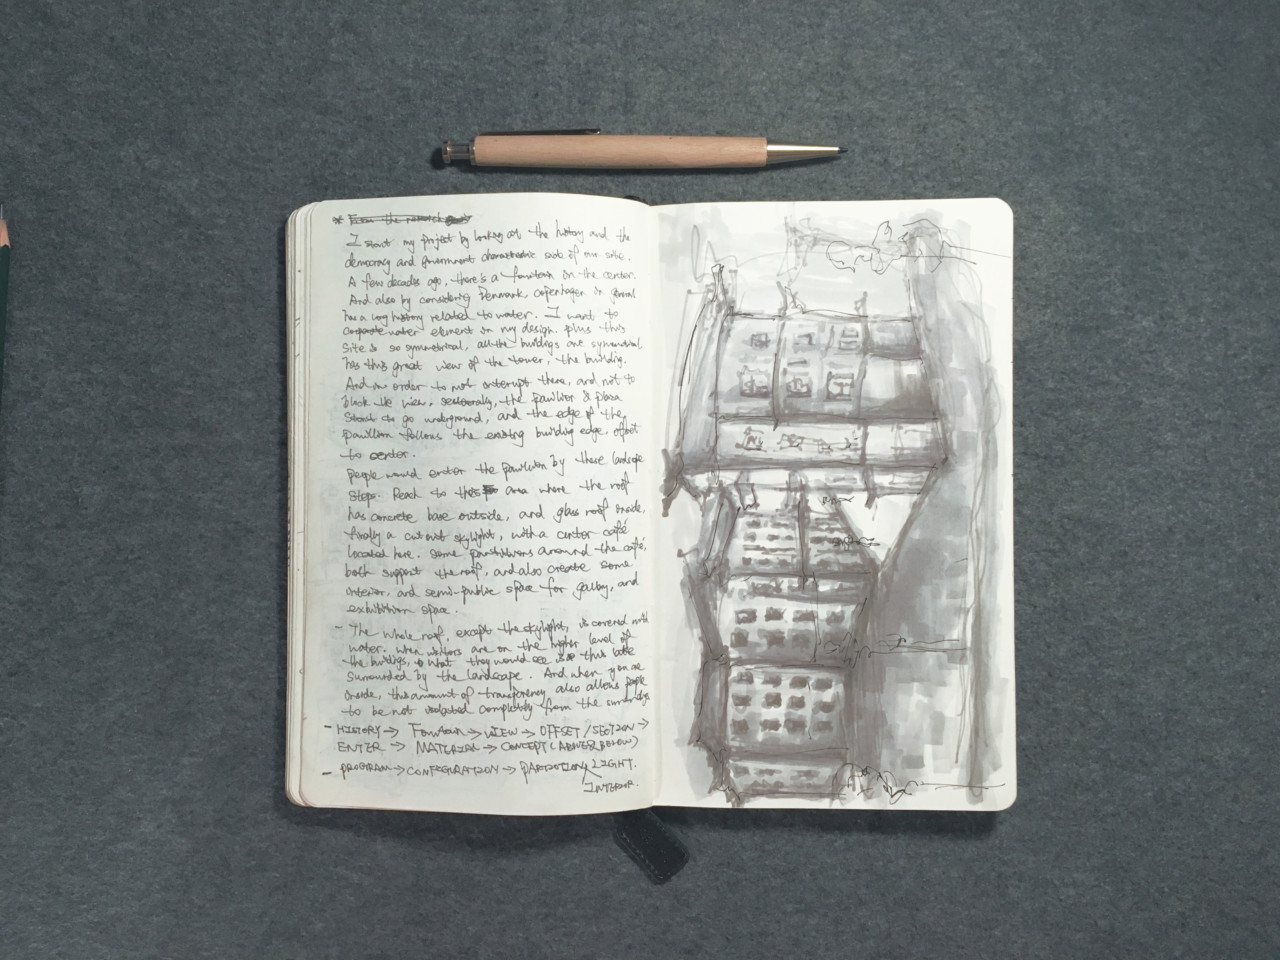 * From the research
I start my project by looking at the history and the
democracy and government characteristic side of our site.
A few decades ago, there's a fountain in the center.
And also by considering Denmark, Copenhagen in general
has a long history related to water. I want to
water element in my design. plus this
site is so symmetrical, all the buildings are symmetrical
has this great view of the tower, the building.
And in order to not interrupt these, and not to
block the view, the pavilion & plaza
Start to go underground, and the edge of the
pavilion follows the existing building edge, offset
to center.
People would enter the pavilion by these landscape
Steps. Reach to this area where the roof
has concrete base outside, and glass roof inside,
finally a cutout skylight, with a center café
located here. Some partitions around the café,
both support the roof, and also create some
interior, and semi-public space for gallery, and
exhibition space.
- The whole roof, except the skylight, is covered with
water. When visitors are on the higher level of
the buildings, what they would see is this lake
surrounded by the landscape. And when you are
inside, this amount of transparency also allows people
to be not isolated completely from the surroundings
- HISTORY → Fountain → VIEW → OFFSET / SECTION →
ENTER → MATERIAL → CONCEPT (ABOVE & BELOW)
- PROGRAM → CONFIGURATION → PARTITION LIGHT.
INTERIOR.